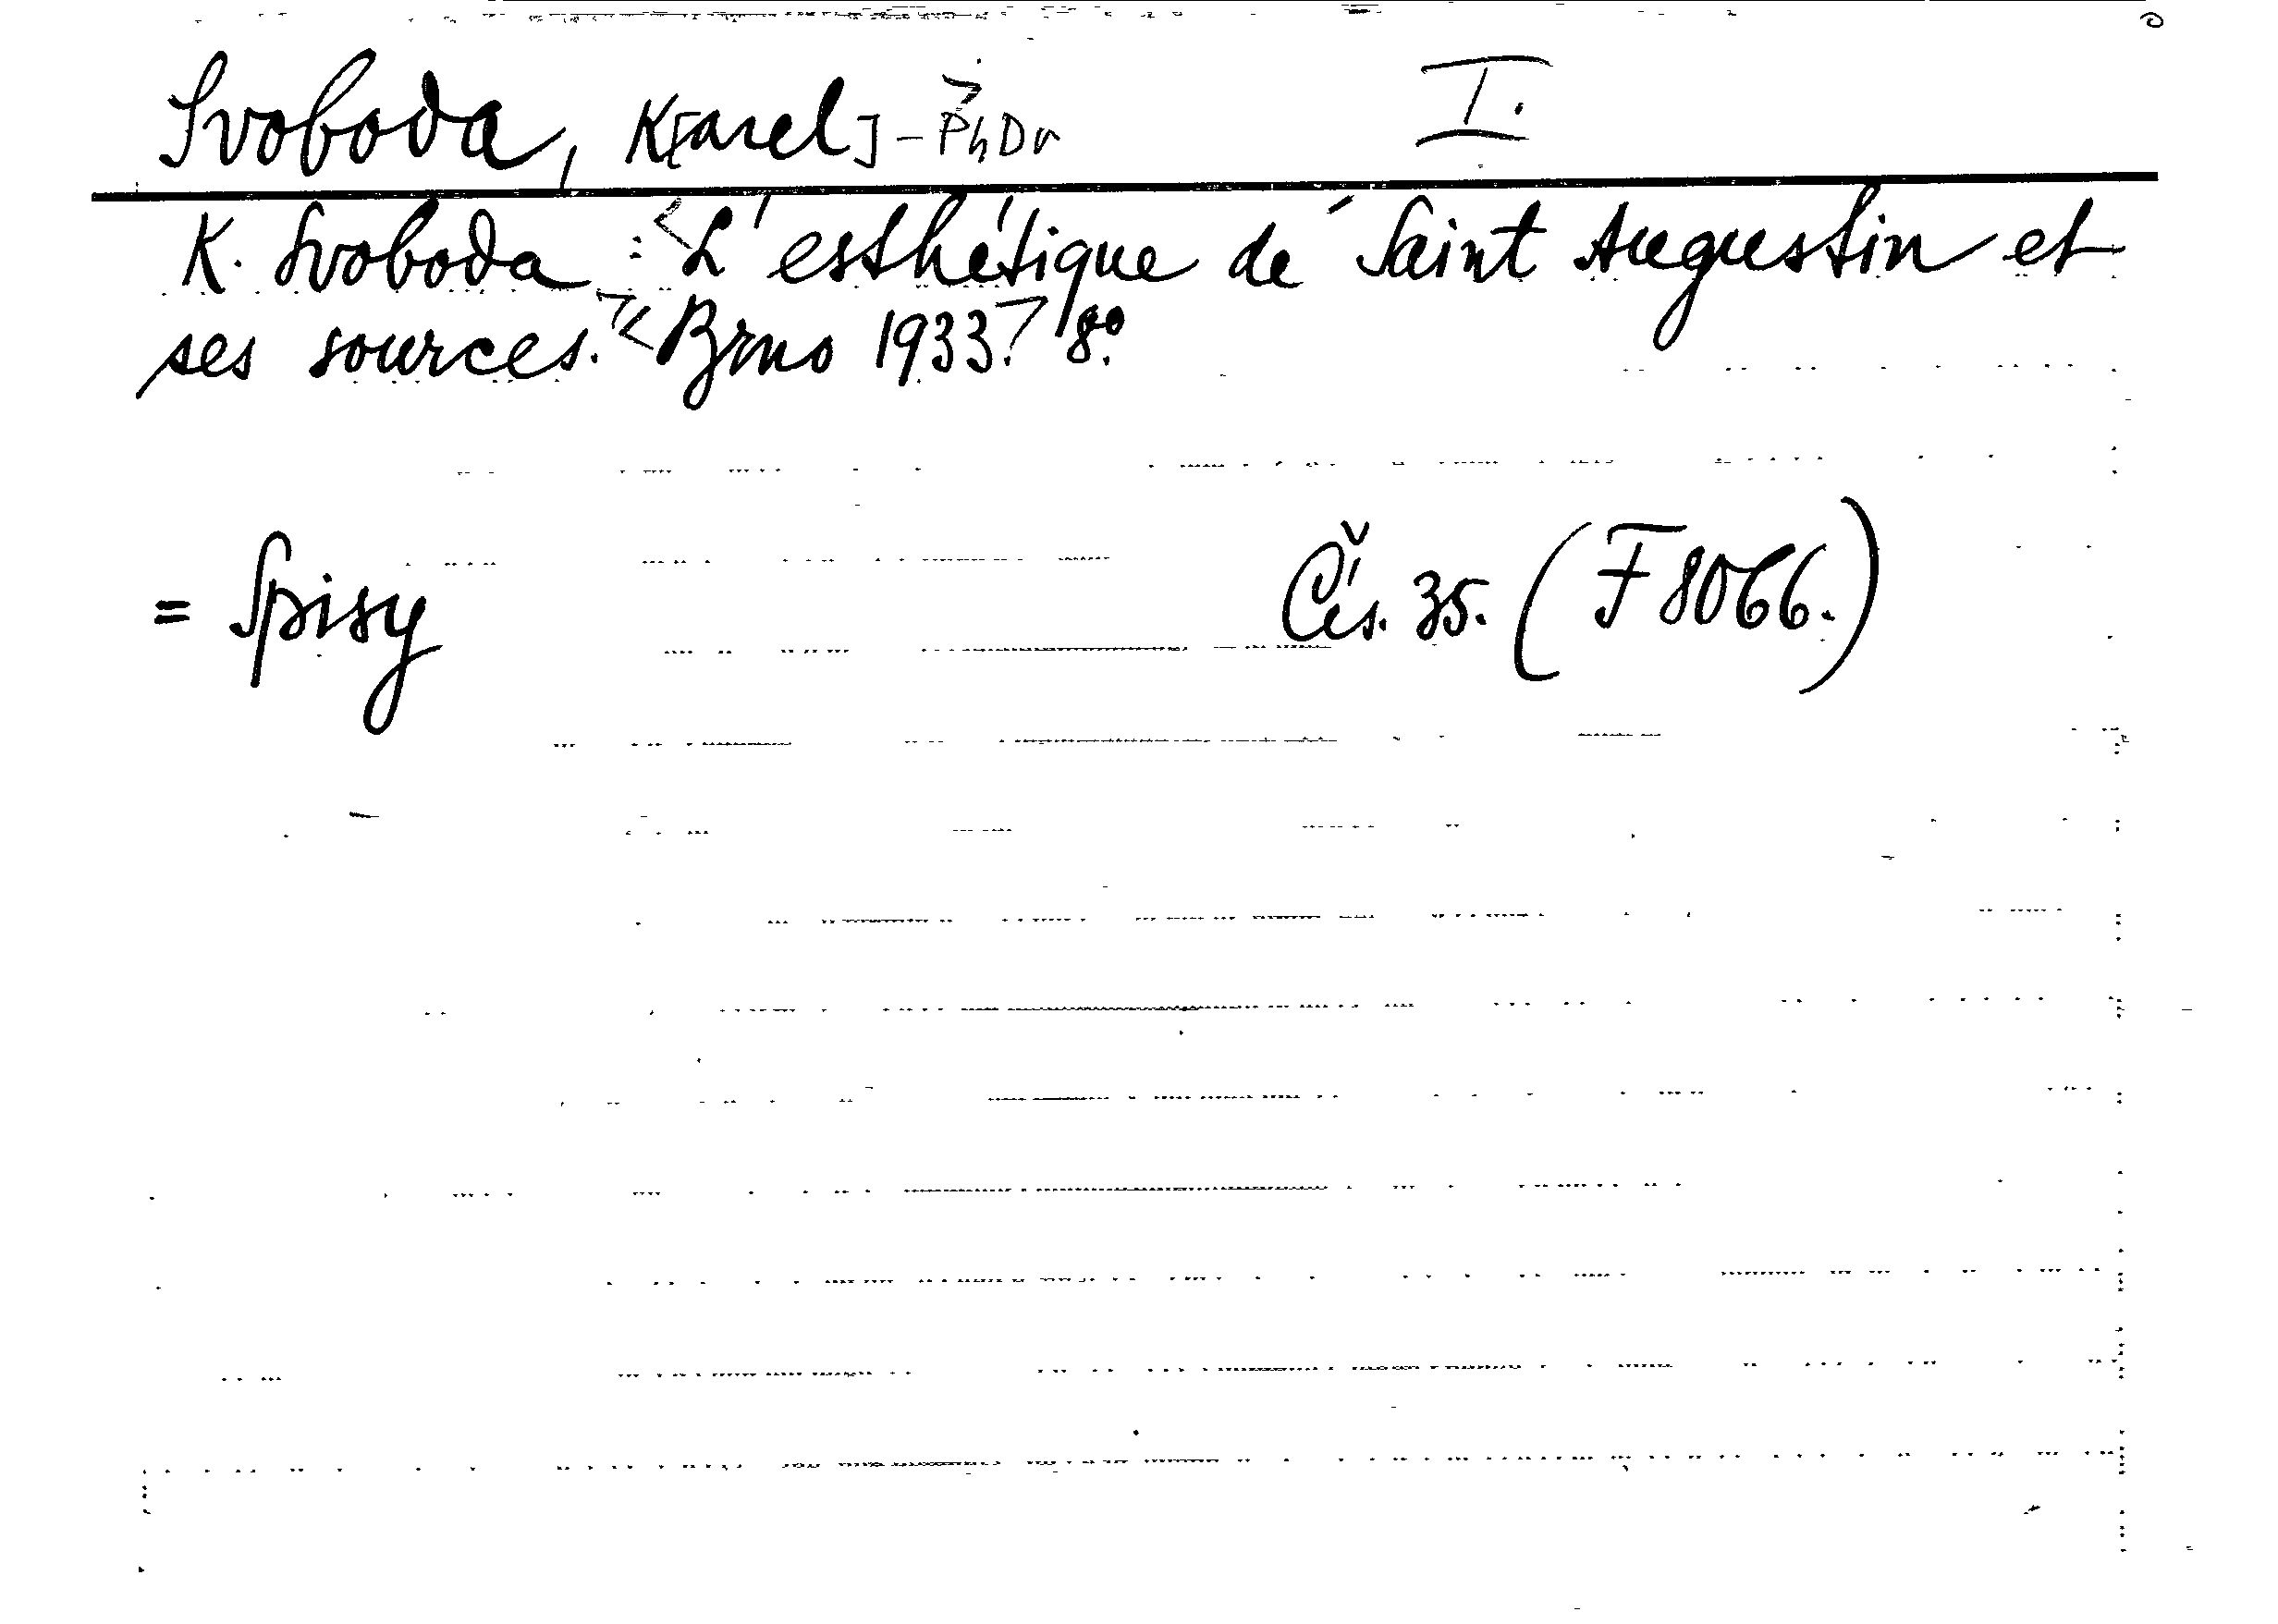 Svoboda, K[arel] - PhDr I.
K. Svoboda: L'esthétique de Saint Augustin et
ses sources. Brno 1933. 8°.
= Spisy Čís. 35. (F 8066.)